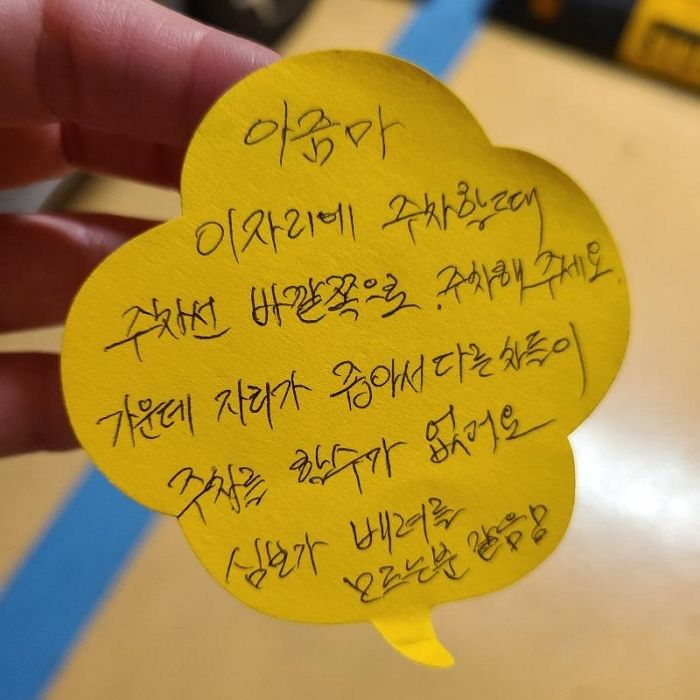 아줌마
이자리에 주차할때
주차선 바깥쪽으로 주차해 주세요.
가운데 자리가 좁아서 다른 차들이
주차를 할수가 없어요
심보가 배려를
모르는분 같음